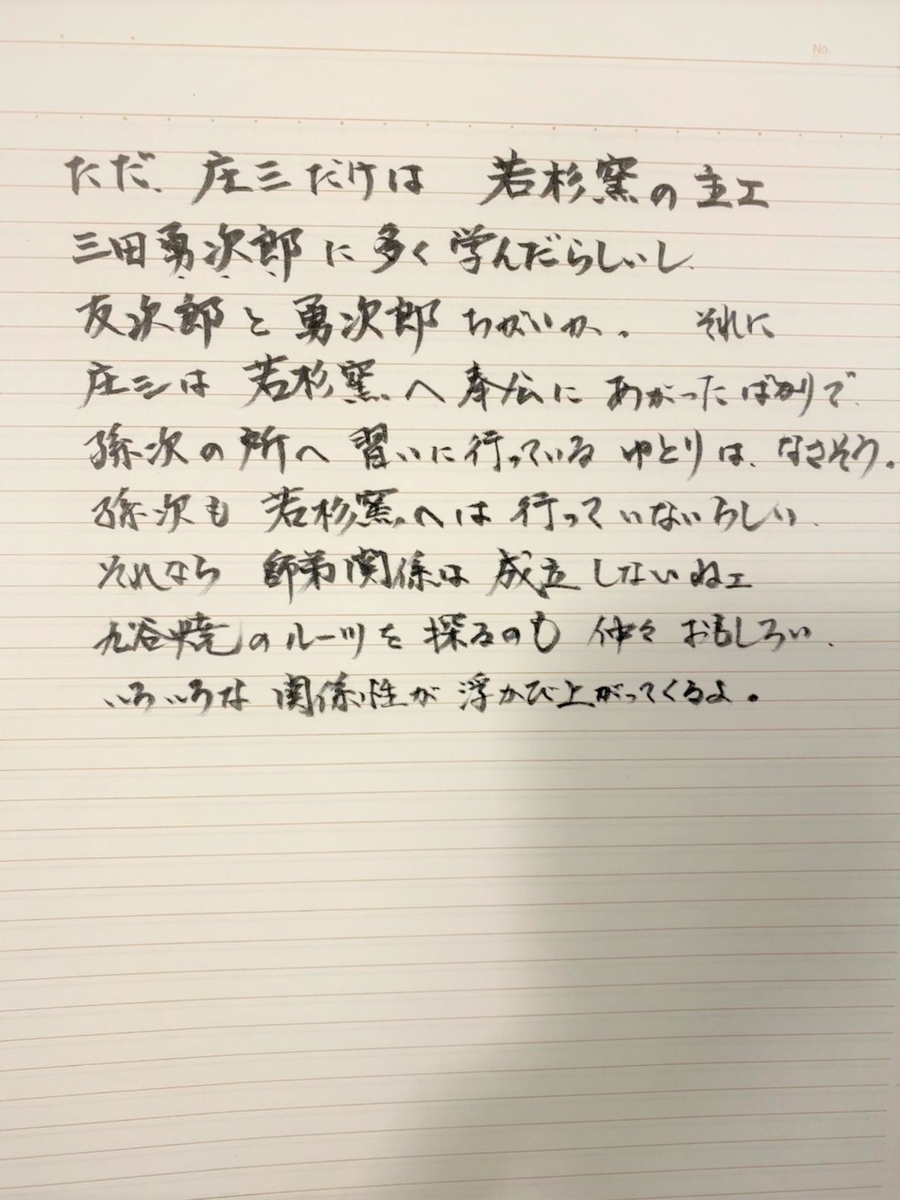 No.
ただ、庄三だけは 若杉窯の主工
三田勇次郎に多く学んだらしいし、
友次郎と勇次郎ちがいか。 それに
庄三は 若杉窯へ奉公にあがったばかりで、
孫次の所へ習いに行っているゆとりは、なさそう。
孫次も 若杉窯へは行っていないらしい、
それなら 師弟関係は成立しないねェ
九谷焼のルーツを探るのも 仲々おもしろい、
いろいろな 関係性が浮かび上がってくるよ。